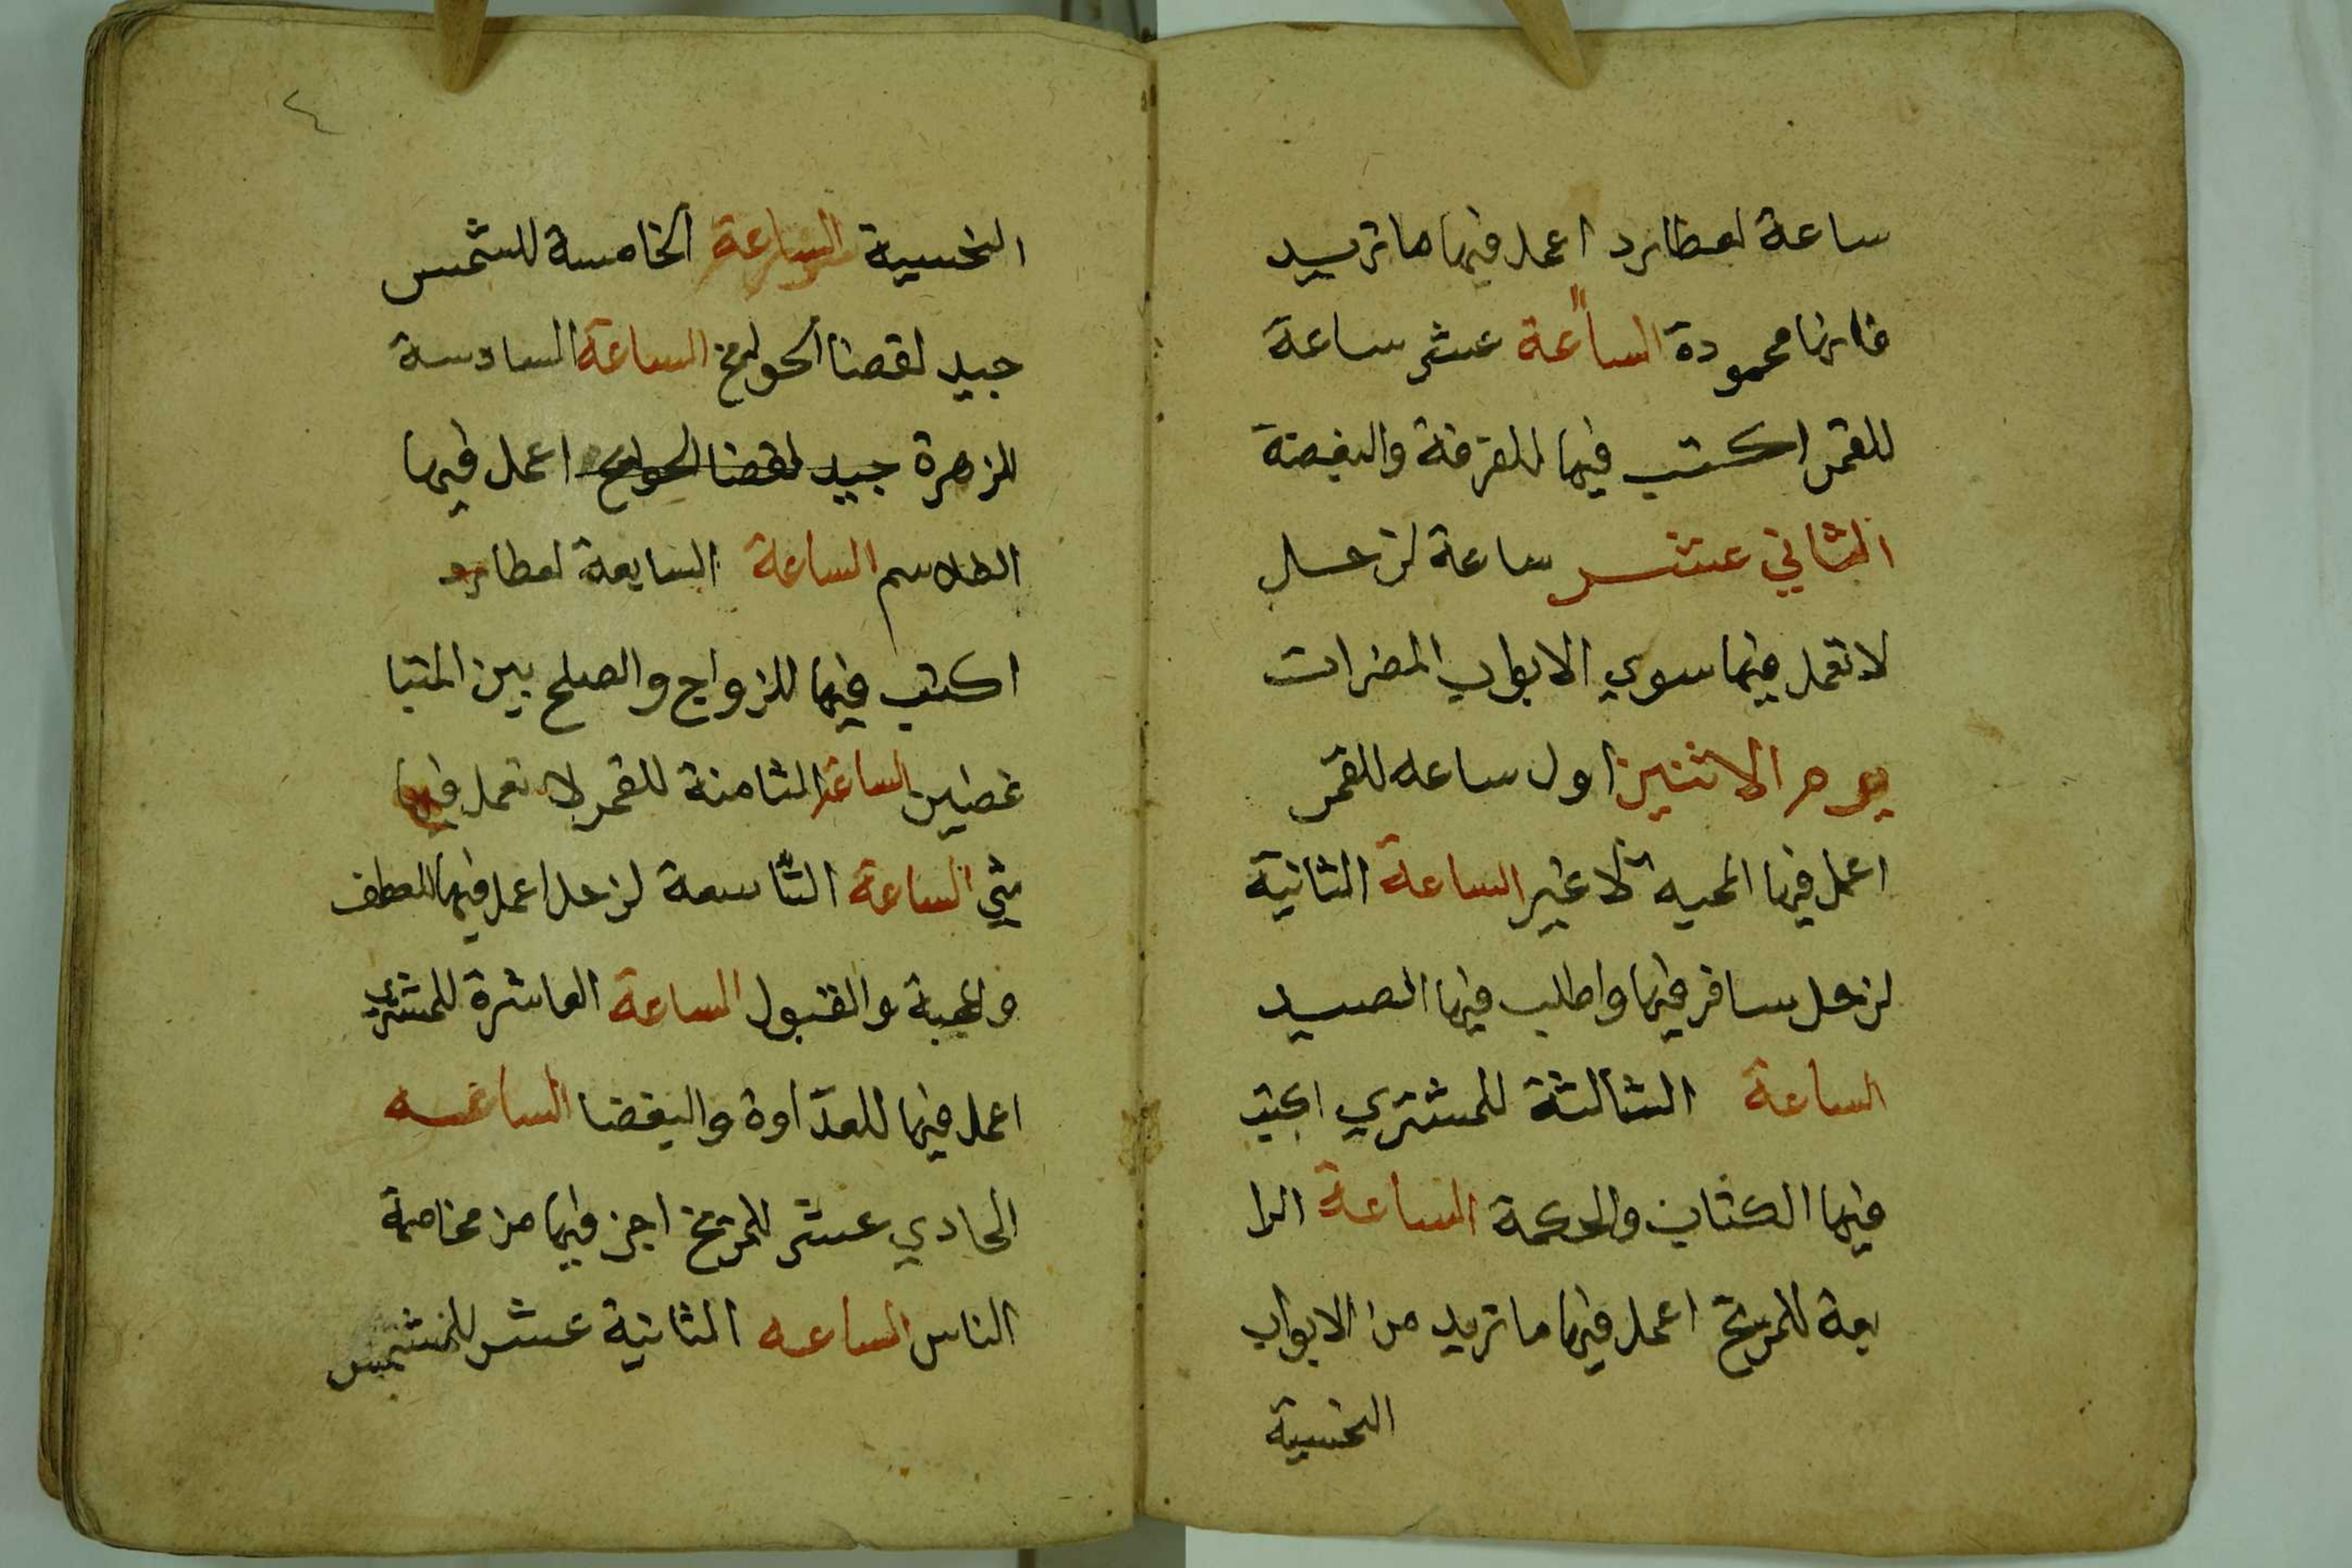 ساعة لعطارد اعمل فيها ما تريد
فانها محمودة الساعة ١١ عشر ساعة
للقمر اكتب فيها للفرقة والبغضة
الثاني عشر ساعة لزحل
لا تعمل فيها سوي الابواب المضرات
يوم الاثنين اول ساعه للقمر
اعمل فيها المحبه لا غير الساعة الثانية
لزحل سافر فيها واطلب فيها الصيد
الساعة الثالثة للمشتري اكتب
فيها الكتاب والحكمة الساعة الرا
بعة للمريخ اعمل فيها ما تريد من الابواب
النحسية
٤
النحسية الساعة الخامسة للشمس
جيد لقضا الحوايج الساعة السادسة
للزهرة جيد لقضا الحوايج اعمل فيها
الطلاسم الساعة السابعة لعطارد
اكتب فيها للزواج والصلح بين المتبا
غضين الساعة الثامنة للقمر لا تعمل فيها
شي الساعة التاسعة لزحل اعمل فيها للعطف
والمحبة والقبول الساعة العاشرة للمشتري
اعمل فيها للعداوة والبغضا الساعه
الحادي عشر للمريخ احذر فيها من مخاصمة
الناس الساعه الثانية عشر للشمس